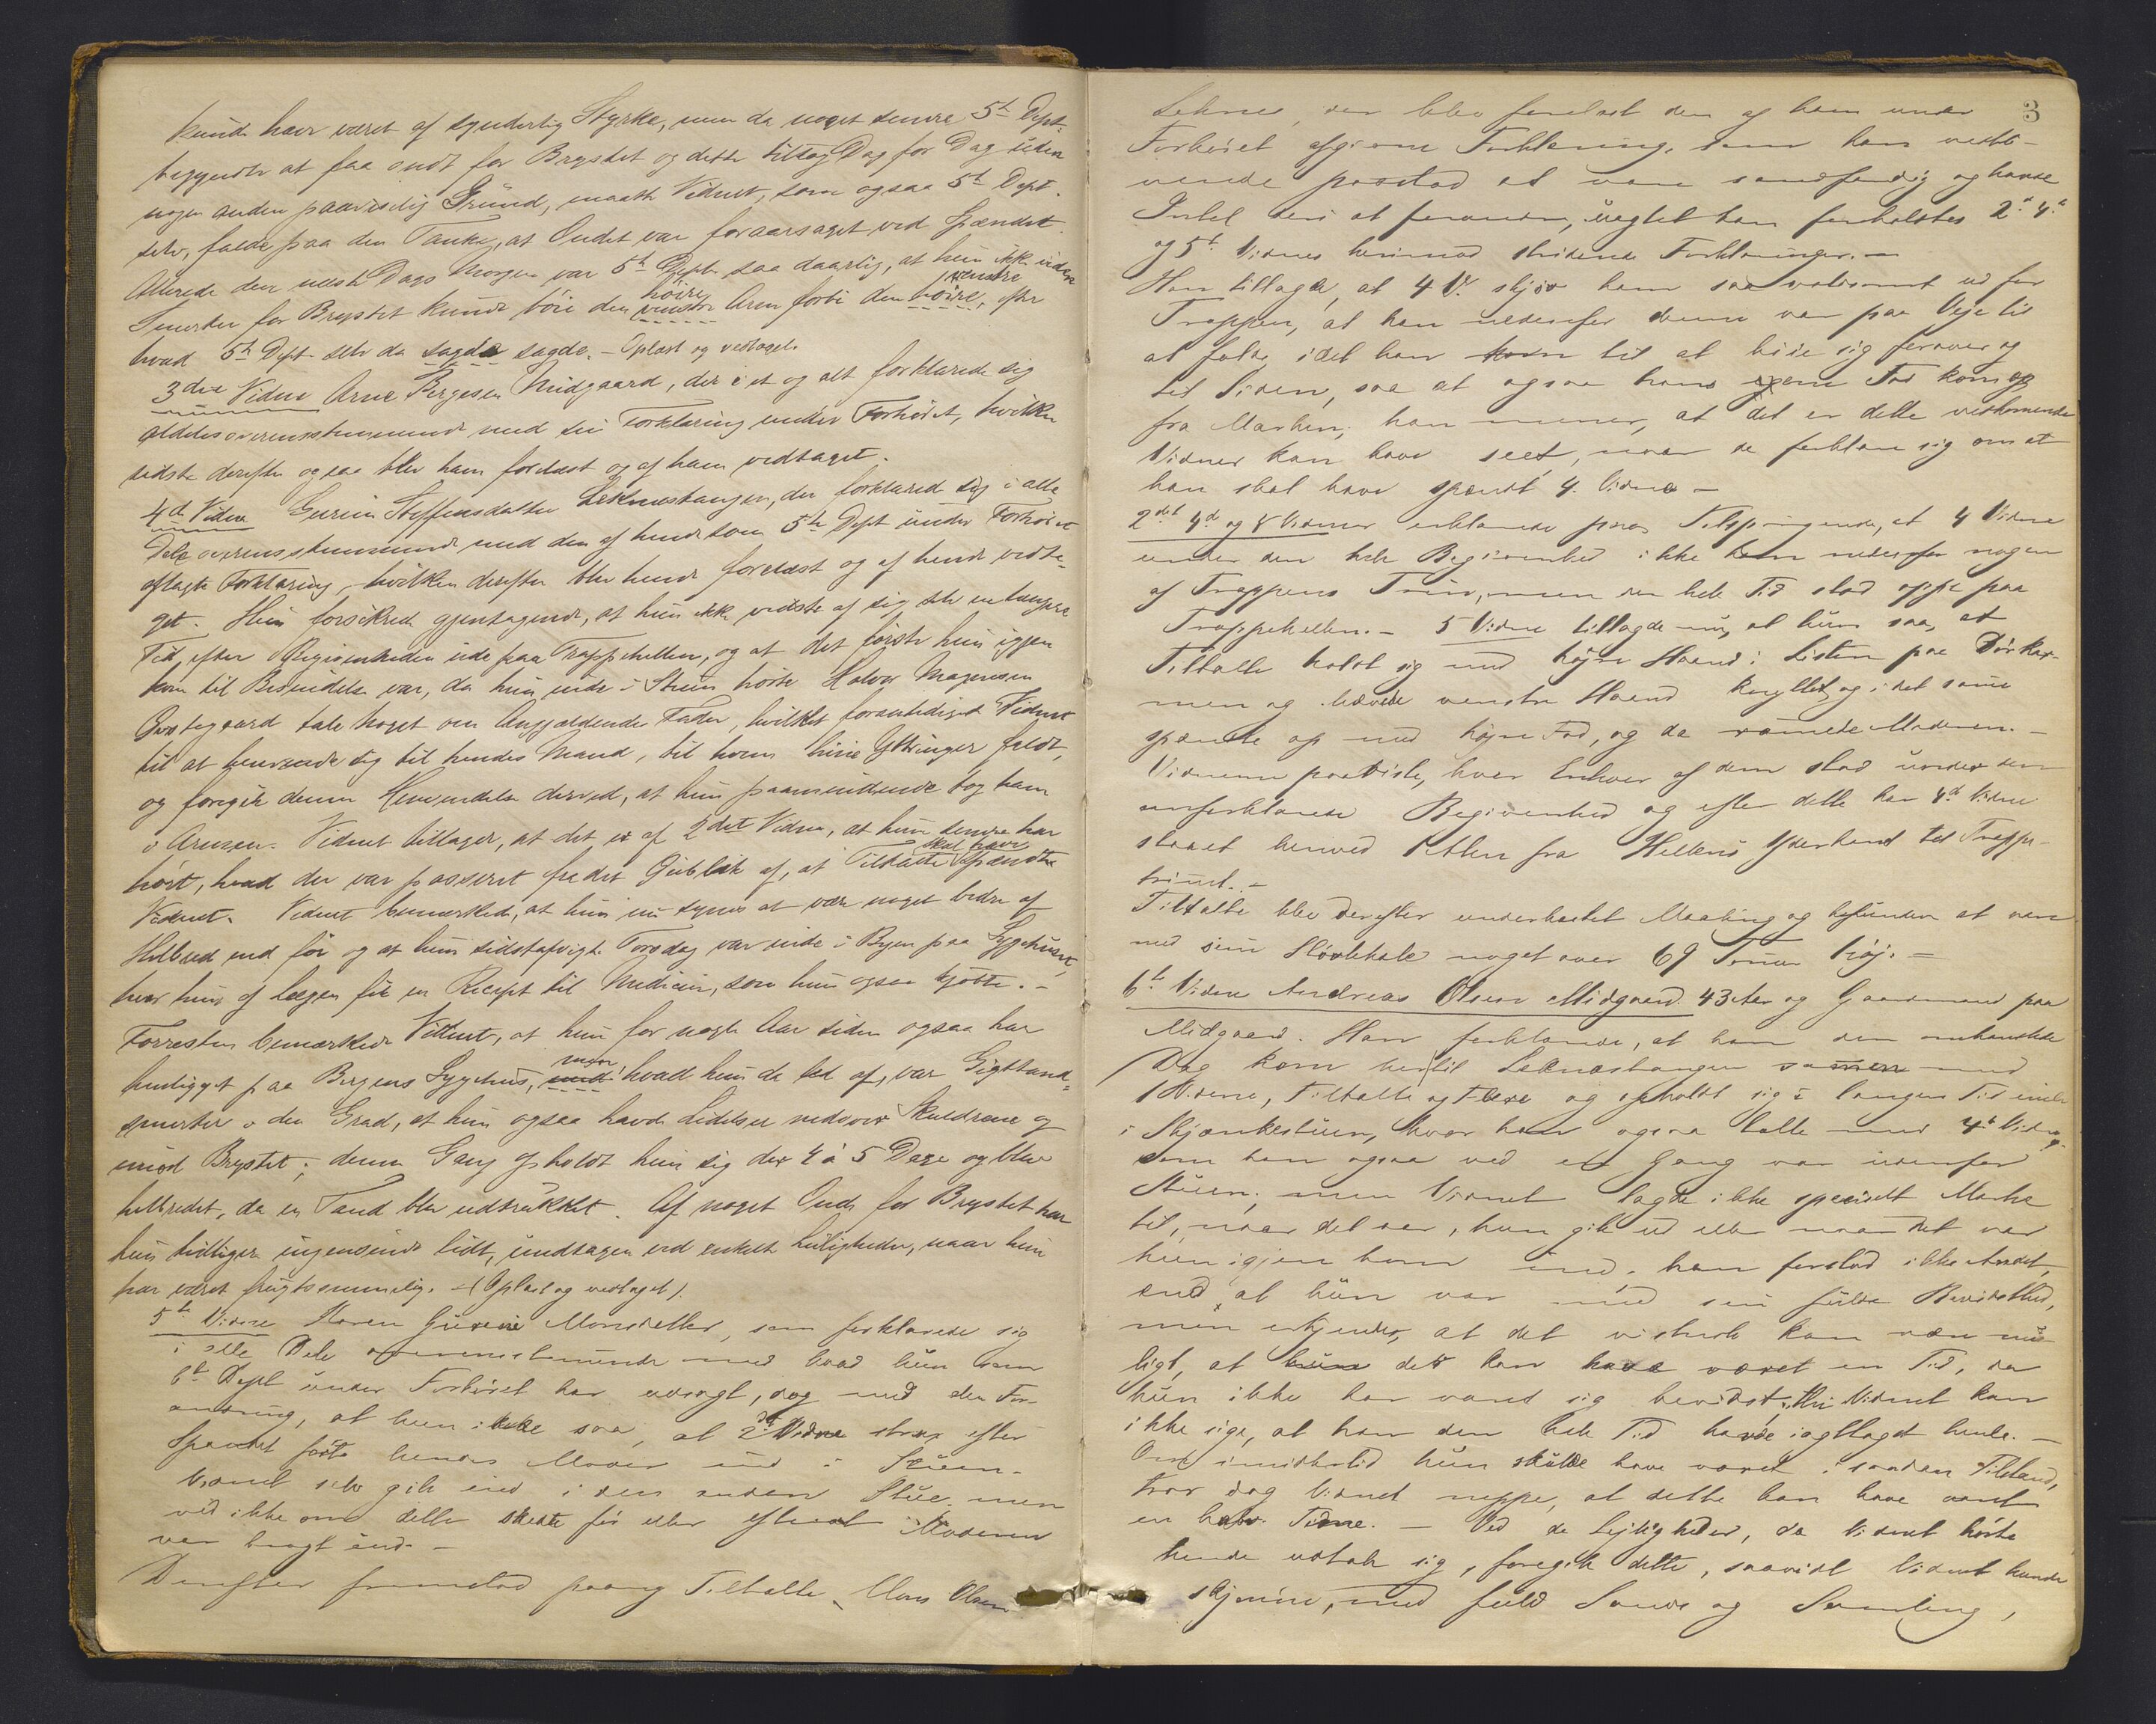 kunde have været af synderlig Styrke, men da noget senere 5te Dept.
begyndte at faa ondt for Brystet og dette tiltog Dag for Dag uden
nogen anden paaviselig Grund, maatte Vidnet, som ogsaa 5te Dept.
selv, falde paa den Tanke, at Ondet var foraarsaget ved Spændet.
Allerede den næste Dags Morgen var 5te Dept. saa daarlig, at hun ikke uden
Smerter for Brystet kunde böie den venstre höire Arm forbi den höire, venstre efter
hvad 5te Dept. selv da sagde sagde. – Oplæst og vedtaget.
3die Vidne Arne Børgesen Midgaard, der i et og alt forklarede sig
aldeles overensstemmende med sin Forklaring under Forhöret, hvilken
sidste derefter ogsaa blev ham forelæst og af ham vedtaget.
4de Vidne Gurine Steffensdatter Leknæstangen, der forklared sig i alle
Dele overensstemmende med den af hende som 5te Dept under Forhöret
aflagte Forklaring, hvilken derefter blev hende forelæst og af hende vedta-
get. Hun forsikrede gjentagende, at hun ikke vidste af sig selv en længere
Tid, efter Begivenheden ude paa Trappehellen, og at det förste hun igjen
kom til Besindelse var, da hun inde i Stuen hörte Halvor Magnesen
Øvstegaard tale noget om Angjældendes Fader, hvilket foranledigede Vidnet
til at henvende sig til hendes Mand, til hvem hine Yttringer faldt,
og foregik denne Henvendelse derved, at hun paamindende tog ham
i Armen. Vidnet tillagde, at det er af 2det Vidne, at hun senere har
hört, hvad der var passeret fra det Øieblik af, at Tiltalte skal have spændte
Vidnet. Vidnet bemærkede, at hun nu synes at være noget bedre af
Helbred end för og at hun sidstafvigte Torsdag var inde i Byen paa Sygehuset,
hvor hun af Lægen fik en Recept til Medicin, som hun ogsaa kjöbte. –
Forresten bemærkede Vidnet, at hun for nogle Aar siden ogsaa har
henligget paa Bergens Sygehus, med men hvad hun da led af, var Gigttand-
smerter i den Grad, at hun ogsaa havde Lidelser nedover Skuldrene og
imod Brystet; denne Gang opholdt hun sig der 4 à 5 Dage og blev
helbredet, da en Tand blev udtrukket. Af noget Ondt for Brystet har
hun tidligere ingensinde lidt, undtagen ved enkelte Leiligheder, naar hun
har været frugtsommelig. – (Oplæst og vedtaget).
5te Vidne Karen Gurine Monsdatter, som forklarede sig
i alle Dele overensstemmende med hvad hun som
6te Dept under Forhöret har udsagt, dog med den For-
andring, at hun ikke saa, at 2det Vidne strax efter
Spændet förte hendes Moder ind i Stuen.
Vidnet selv gik ind i den anden Stue, men
ved ikke om dette skede för eller efterat Moderen
var bragt ind. –
Derefter fremstod paany Tiltalte Mons Olsen
3
Leknes, der blev forelæst den af ham under
Forhöret afgivne Forklaring, som han vedbli-
vende paastod at være sandfærdig og havde
Intet deri at forandre, uagtet han forholdtes 2de 4de
og 5te Vidnes herimod stridende Forklaringer. –
Han tillagde, at 4 V. skjöv ham saa voldsomt ud for
Trappen, at han nedenfor denne var paa Veje til
at falde, idet han kom til at böie sig forover og
til Siden, saa at ogsaa hans ene Fod kom op
fra Marken; han mener, at det er dette vedkommende
Vidner kan have seet, naar de forklare sig om at
han skal have spændt 4. Vidne –
2det 4de og 5 Vidner erklærede paa Tilspörgende, at 4 Vidne
under den hele Begivenhed ikke kom nedenfor nogen
af Trappens Trin, men den hele Tid stod oppe paa
Trappehellen. – 5 Vidne tillagde nu, at hun saa, at
Tiltalte holdt sig med höjre Haand i Listen paa Dörkar-
men og hævede venstre Haand knyttet, og i det samme
spændte op med höjre Fod, og da ramte Moderen. –
Vidnerne paaviste, hvor Enhver af dem stod under den
omforklarede Begivenhed og efter dette har 4de Vidne
staaet henved 1 Alen fra Hellens Yderkant til Trappe-
trinet. –
Tiltalte blev derefter underkastet Maaling og befunden at være
med sine Stövlehæle noget over 69 Tommer höj. –
6te Vidne Andreas Olsen Midgaard 43 Aar og Gaardmand paa
Midgaard. Han forklarede, at han den omhandlede
Dag kom hertil Leknæstangen sammen med
1 Vidne, Tiltalte og Flere og opholdt sig i længere Tid inde
i Skjænkestuen, hvor han ogsaa talte med 4de Vidne,
som han ogsaa ved en Gang var udenfor
Stuen; men Vidnet lagde ikke specielt Mærke
til, naar det var, hun gik ud eller naar det var
hun igjen kom ind, han forstod ikke Andet,
end at hun var med sin fulde Bevidsthed,
men erkjender, at det vistnok kan være mu-
ligt, at hun det kan have været en Tid, da
hun ikke har været sig bevidst, thi Vidnet kan
ikke sige, at han den hele Tid havde iagttaget hende. –
Om imidlertid hun skulde have været i saadan Tilstand,
tror dog Vidnet neppe, at dette kan have varet
en halv Time. – Ved de Lejligheder, da Vidnet hörte
hende udtale sig, foregik dette, saavidt Vidnet kunde
skjönne, med fuld Sands og Samling,